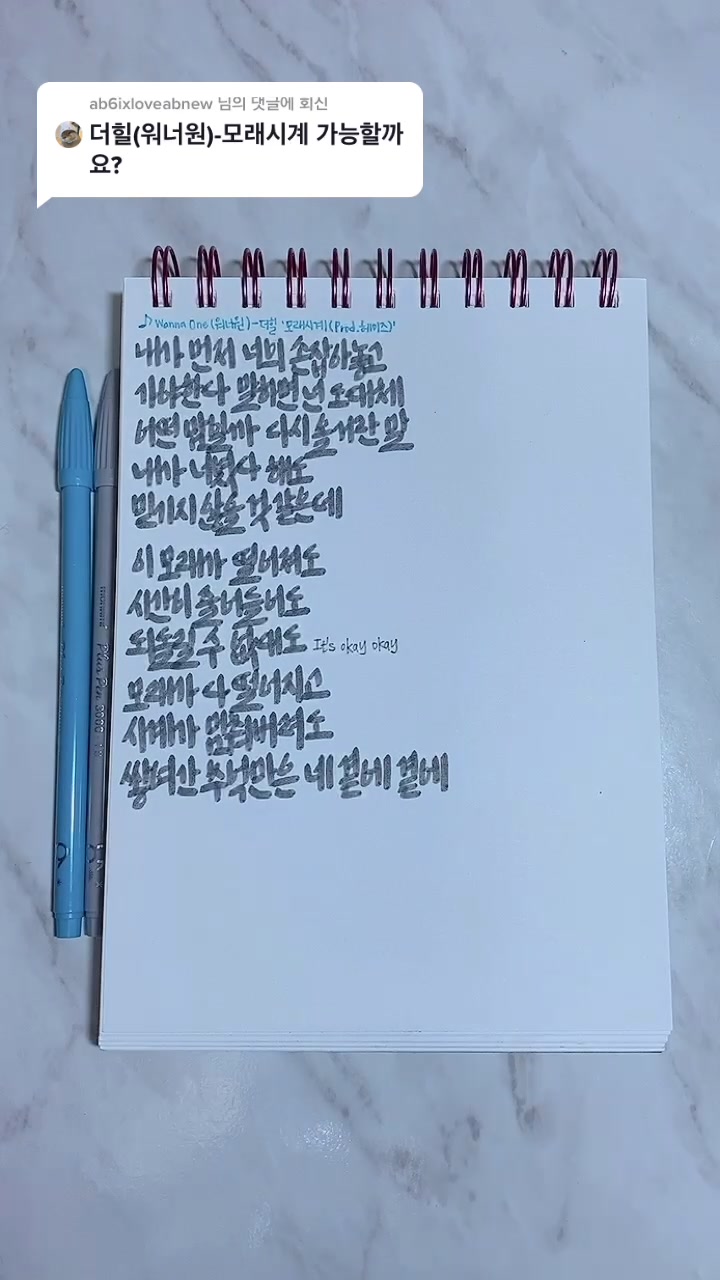 ab6ixloveabnew 님의 댓글에 회신
더힐(워너원)-모래시계 가능할까
요?
♪ Wanna One(워너원)-더힐 '모래시계(Prod.헤이즈)'
내가 먼저 너의 손잡아놓고
미안한다 말하면 넌 도대체
어떤 맘일까 다시 돌아간 말
내가 너였다 해도
믿기지 않을 것 같은데
이 모래가 떨어져도
시간이 흘러흘러도
되돌릴 수 없대도 It's okay okay
모래가 다 떨어지고
시계가 멈춰버려도
쌓여간 추억만은 네 곁에 곁에
Plus Pen 3000